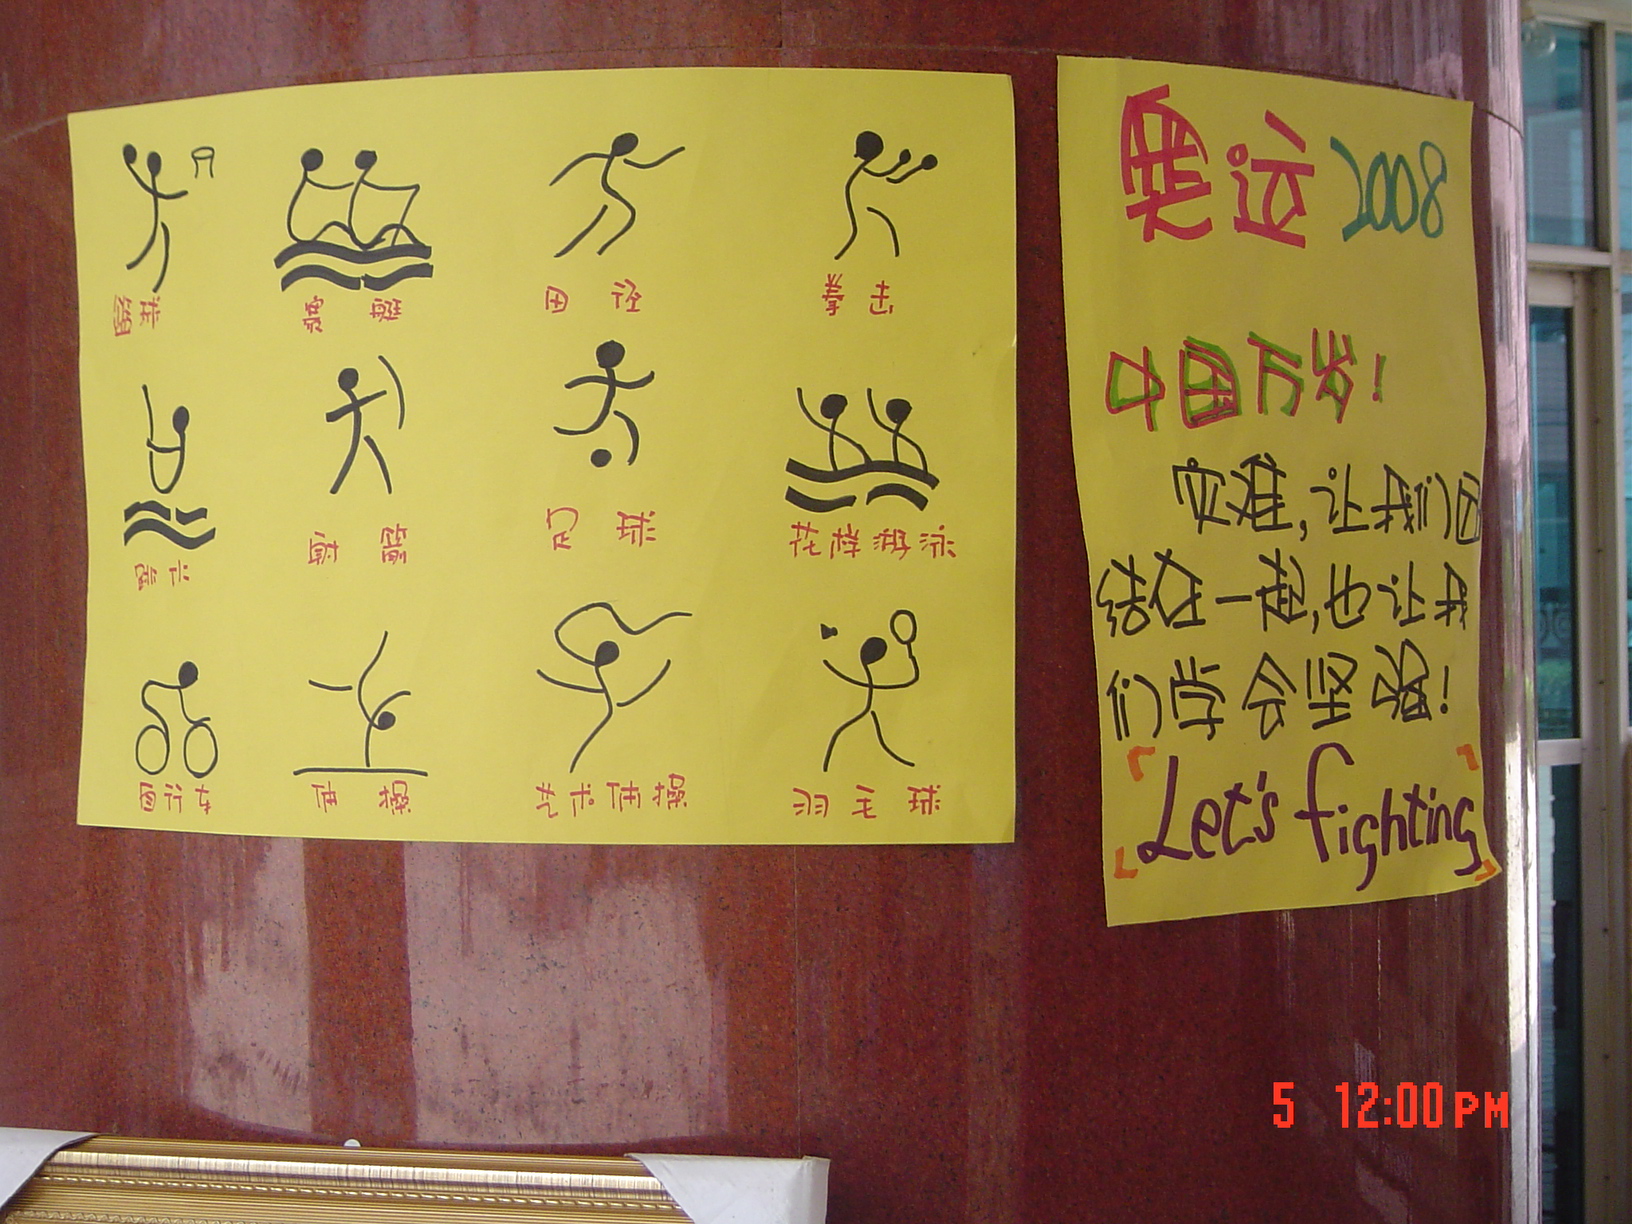 篮球 赛艇 田径 拳击
跳水 射箭 足球 花样游泳
自行车 体操 艺术体操 羽毛球
奥运2008
中国万岁!
灾难,让我们团
结在一起,也让我
们学会坚强!
「Let's fighting」
5 12:00PM